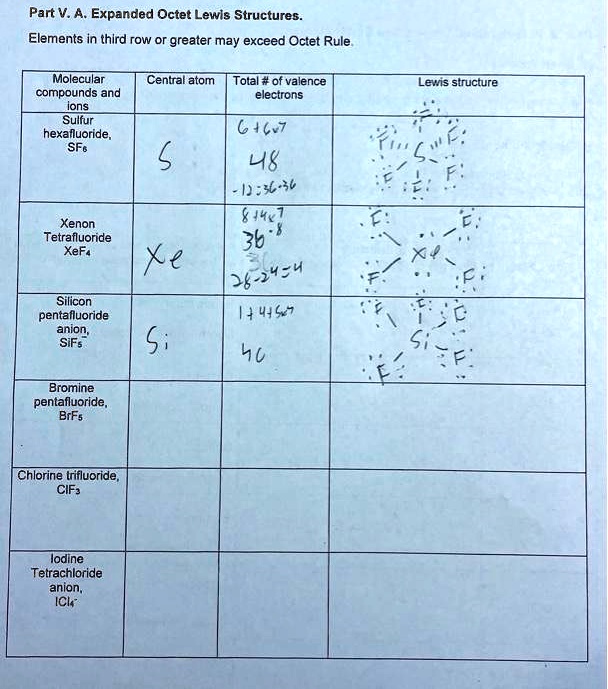 Part V. A. Expanded Octet Lewis Structures.
Elements in third row or greater may exceed Octet Rule.
Molecular compounds and ions
Central atom
Total # of valence electrons
Lewis structure
Sulfur
hexafluoride,
SF6
S
6+6x7
48
-12=36-36
F
F F
S
F F
F
Xenon
Tetrafluoride
XeF4
Xe
8+4x7
36-8
28-24=4
F F
Xe
F F
Silicon
pentafluoride
anion,
SiF5-
Si
1+4+5x7
40
F F F
Si
F F
Bromine
pentafluoride,
BrF5
Chlorine trifluoride,
ClF3
Iodine
Tetrachloride
anion,
ICl4-